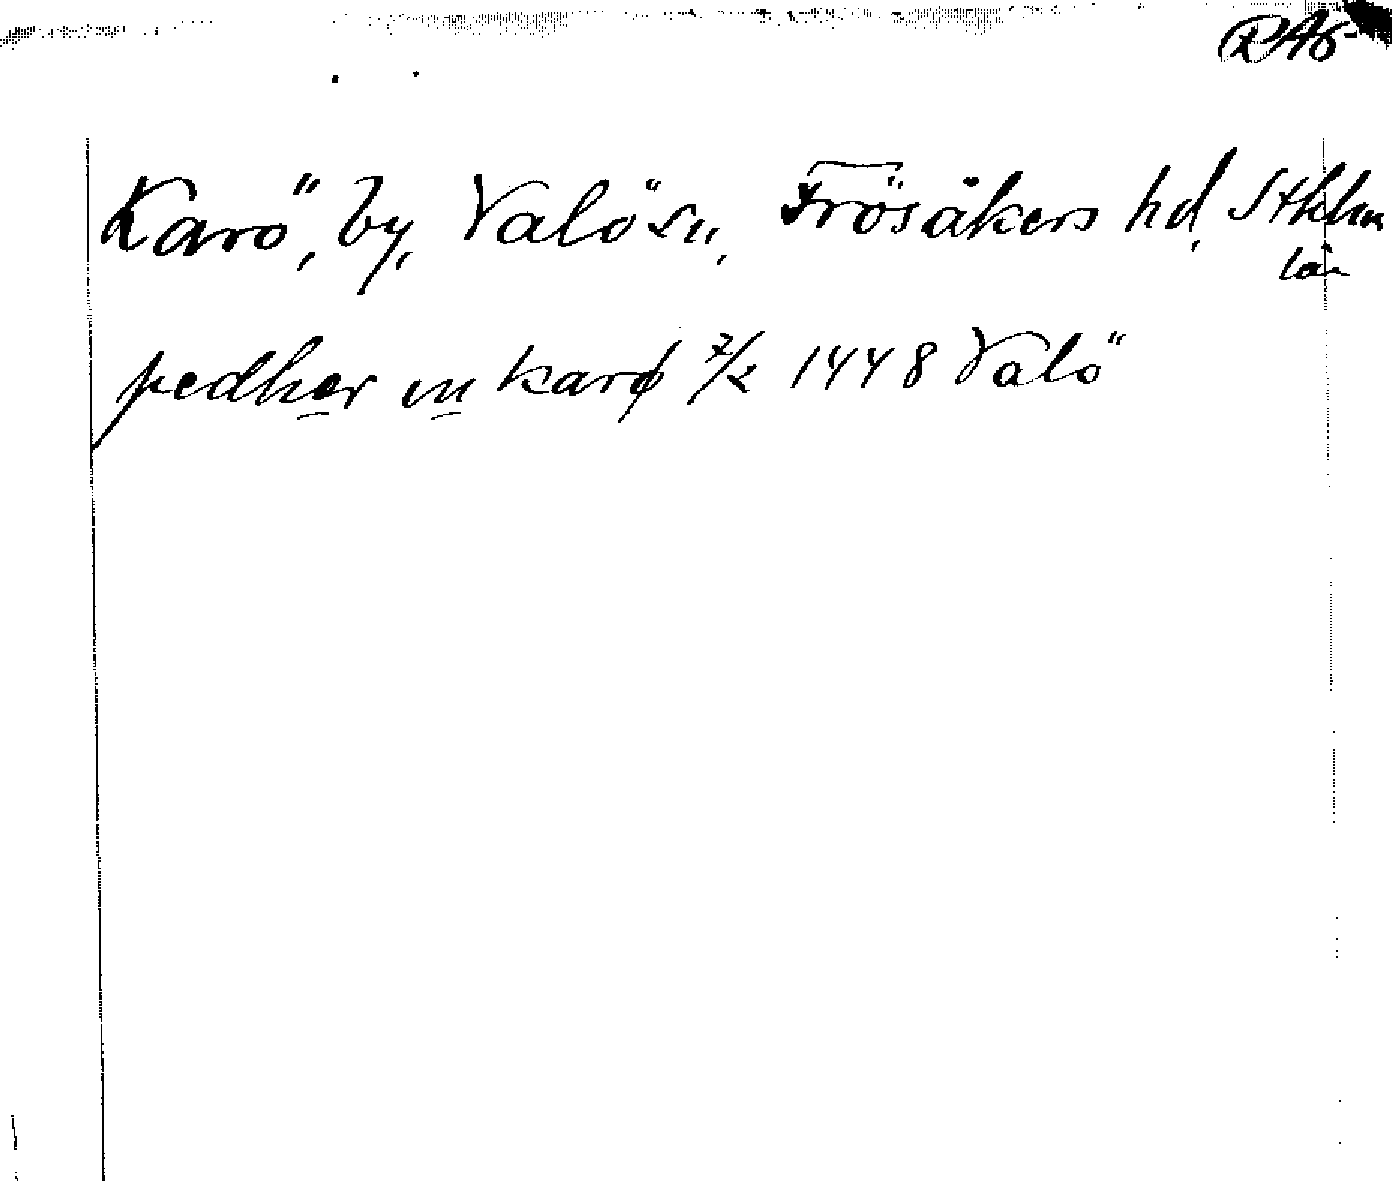 RAö
Karö, by, Valö sn, Frösåkers hd, Sthlm
län
pedher in karø 7/2 1448 Valö